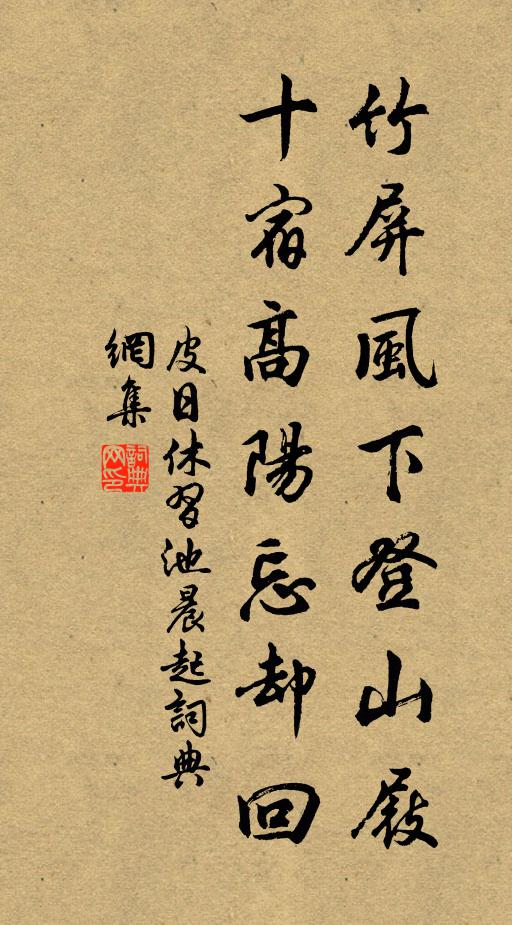 竹屏風下登山屐
十宿高陽忘却回
皮日休習池晨起詞典
網集
詞典網印